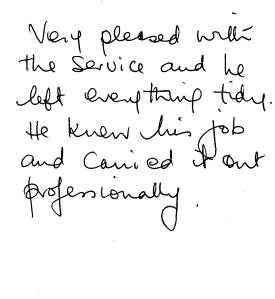 Very pleased with
the service and he
left everything tidy.
He knew his job
and carried it out
professionally.